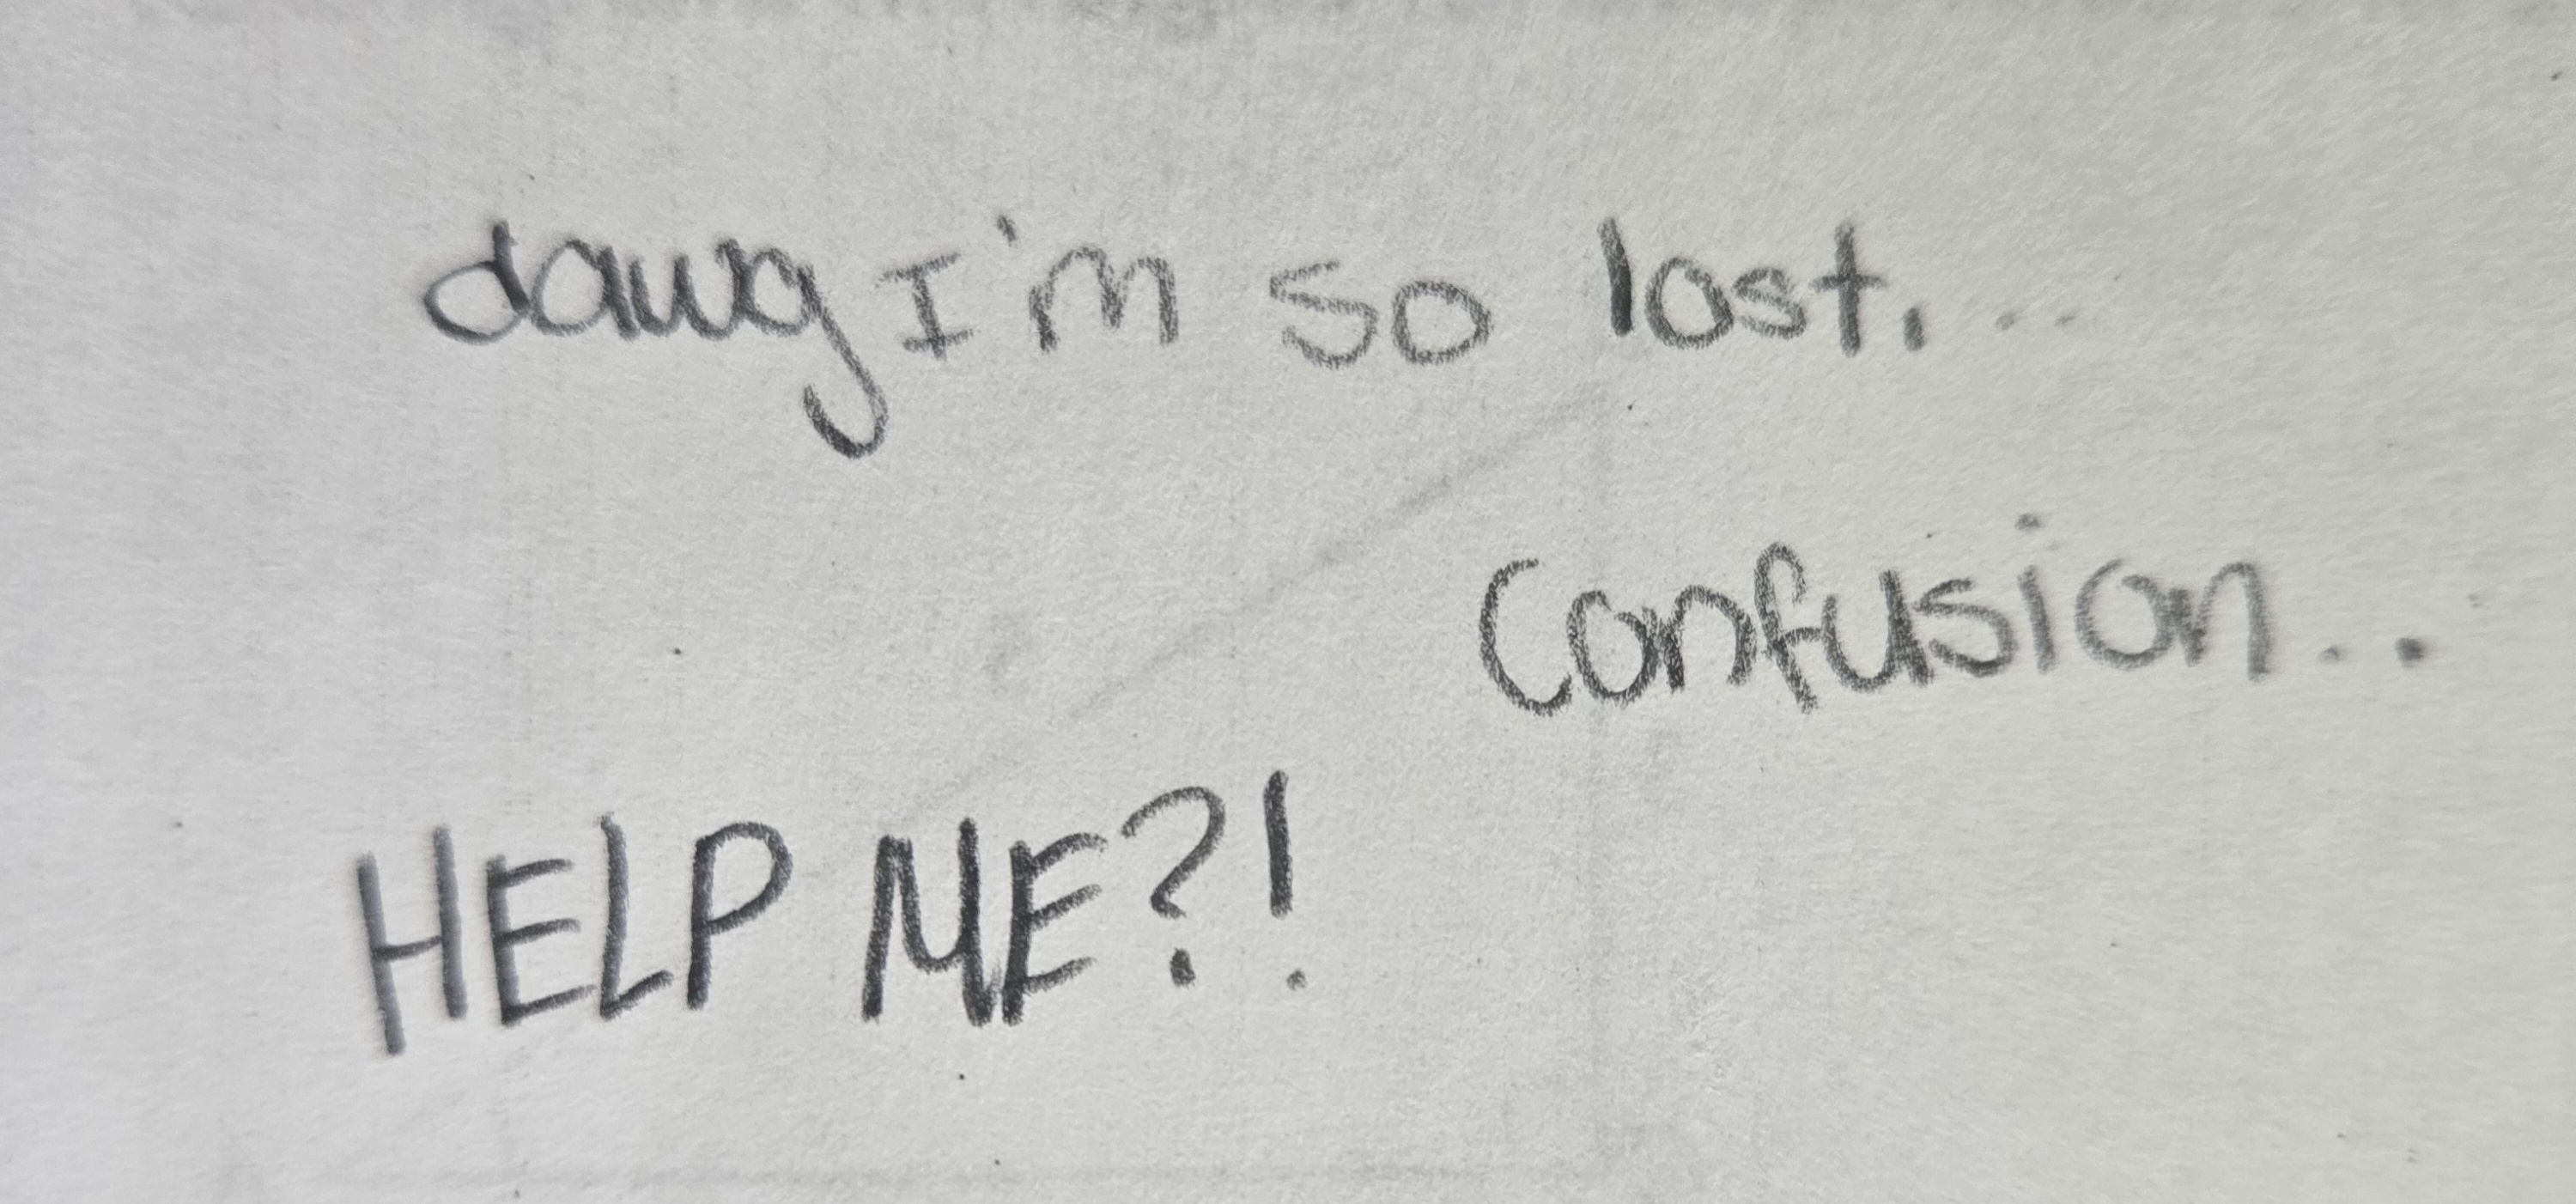 dawg I'm so lost...
Confusion..
HELP ME?!